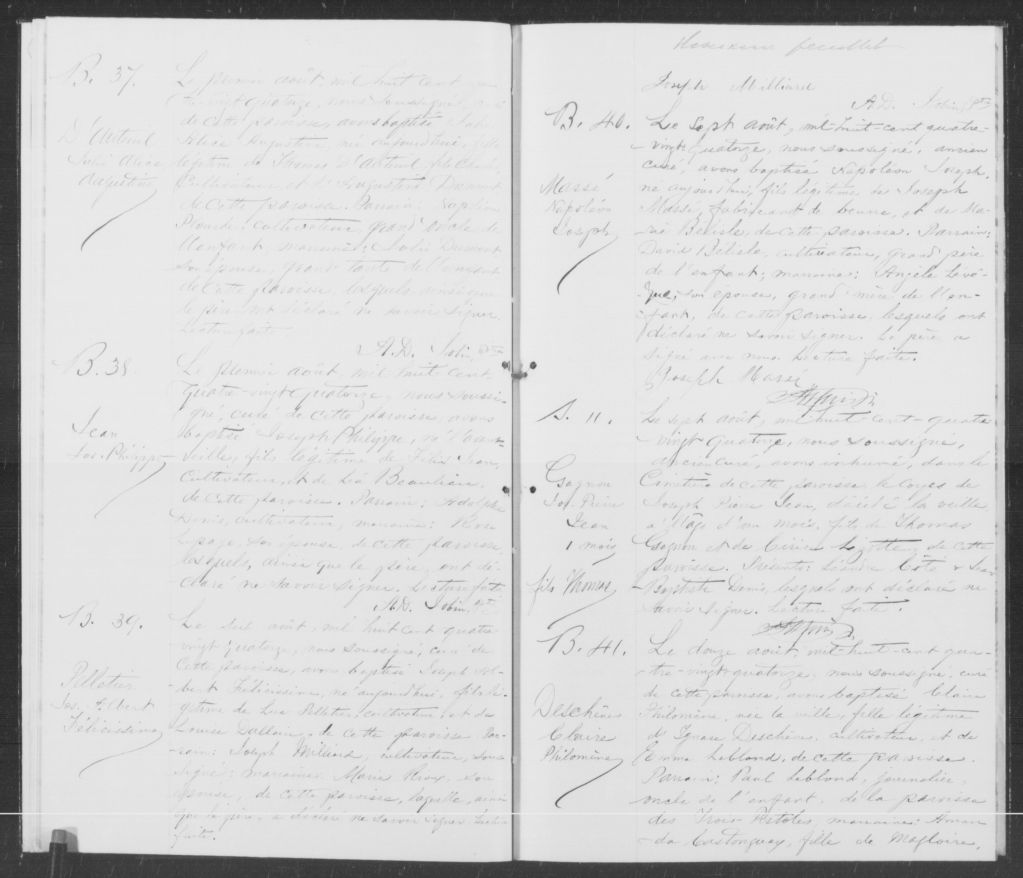 B. 37.
D'Auteuil
Julie Alice
Augustine
Le premier août, mil huit cent qua-
tre-vingt quatorze, nous soussigné, curé
de cette paroisse, avons baptisé Julie
Alice Augustine, née aujourd'hui, fille
légitime de Thomas D'Auteuil
cultivateur, et d'Augustine Dumont
de cette paroisse. Parrain:
Plourde, cultivateur, grand oncle de
l'enfant; marraine: Dumont
son épouse, grand tante de l'enfant
de cette paroisse, lesquels ainsi que
le père ont déclaré ne savoir signer.
Lecture faite.
A.D. Ptre
B. 38.
Jean
Jos. Philippe
Le premier août mil huit cent
quatre vingt quatorze, nous soussi-
gné, curé de cette paroisse, avons
baptisé Joseph Philippe, né l'avant
veille, fils légitime de Félix Jean,
cultivateur, et de Beaulieu,
de cette paroisse. Parrain: Adolphe
Denis, cultivateur, marraine: Rose
Lepage, son épouse, de cette paroisse,
lesquels, ainsi que le père, ont dé-
claré ne savoir signer. Lecture faite
A.D. Ptre
B. 39.
Pelletier
Jos. Albert
Félicissime
Le août, mil huit cent quatre
vingt quatorze, nous soussigné, curé de
cette paroisse, avons baptisé Joseph Al-
bert Félicissime, né aujourd'hui, fils lé-
gitime de Luc Pelletier, cultivateur, et de
Louise Dallaire, de cette paroisse. Par-
rain: Joseph Milliard, cultivateur, sous-
signé; marraine: Marie Rioux, son
épouse, de cette paroisse, laquelle, ainsi
que le père, a déclaré ne savoir signer. Lecture
faite.
feuillet
Joseph Milliard
A.D. Ptre
B. 40.
Massé
Napoléon
Joseph
Le sept août, mil-huit-cent quatre-
vingt quatorze, nous soussigné, ancien
curé, avons baptisé Napoléon Joseph,
né aujourd'hui, fils légitime de Joseph
Massé, fabricant de beurre, et de Ma-
rie Belisle, de cette paroisse. Parrain:
David Belisle, cultivateur, grand père
de l'enfant; marraine: Angèle Levê-
que, son épouse, grand'mère de l'en-
fant, de cette paroisse, lesquels ont
déclaré ne savoir signer. Le père a
signé avec nous. Lecture faite.
Joseph Massé
S. 11.
Gagnon
Jos. Pierre
Jean
1 mois
fils Thomas
Le sept août, mil huit-cent-quatre
vingt quatorze, nous soussigné,
ancien curé, avons inhumé, dans le
cimetière de cette paroisse le corps de
Joseph Pierre Jean, décédé la veille
à l'âge d'un mois, fils de Thomas
Gagnon et de de cette
paroisse. Présents: Côté & Jean
Baptiste Denis, lesquels ont déclaré ne
savoir signer. Lecture faite.
B. 41.
Deschênes
Claire
Philomène
Le douze août, mil-huit-cent qua-
tre-vingt-quatorze, nous soussigné, curé
de cette paroisse, avons baptisé Claire
Philomène, née la veille, fille légitime
d'Ignace Deschênes, cultivateur, et de
Emma Leblond, de cette paroisse.
Parrain: Paul Leblond, journalier,
oncle de l'enfant, de la paroisse
des Trois-Pistoles, marraine: Aman-
da Castonguay, fille de Magloire,